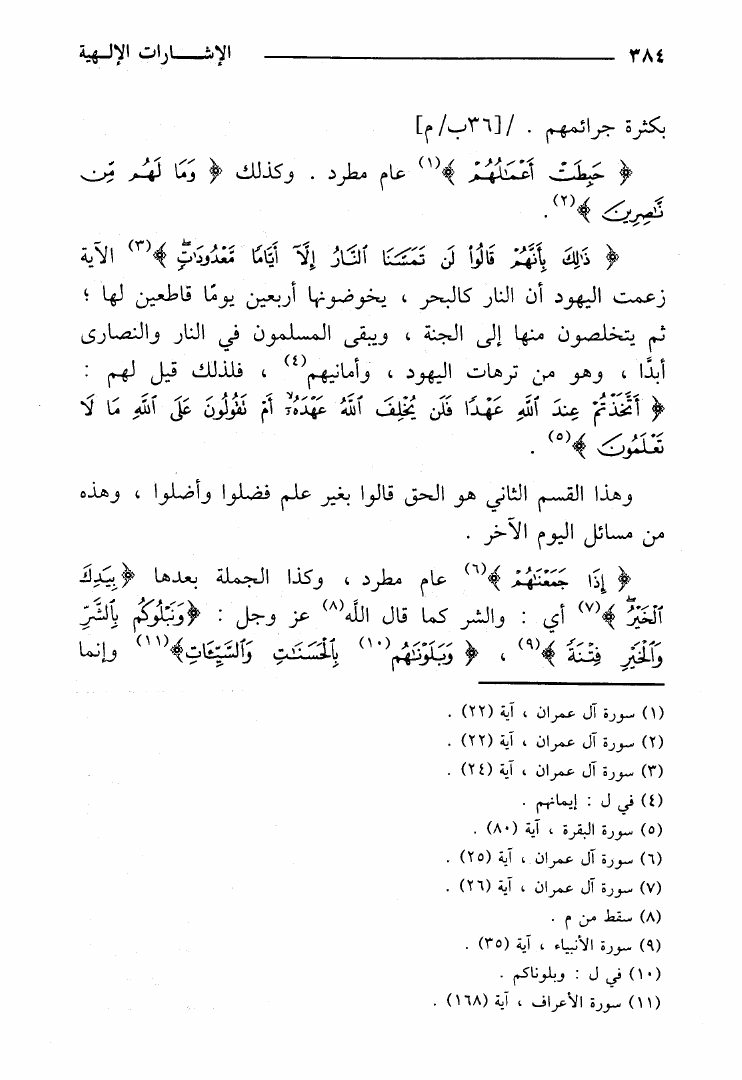 ٣٨٤ الإشــــارات الإلــهية
بكثرة جرائمهم . /[٣٦ب/م]
﴿ حَبِطَتْ أَعْمَـٰلُهُمْ ﴾(١) عام مطرد . وكذلك ﴿ وَمَا لَهُم مِّن
نَّـٰصِرِينَ ﴾(٢).
﴿ ذَٰلِكَ بِأَنَّهُمْ قَالُوا۟ لَن تَمَسَّنَا ٱلنَّارُ إِلَّآ أَيَّامًا مَّعْدُودَٰتٍ ﴾(٣) الآية
زعمت اليهود أن النار كالبحر ، يخوضونها أربعين يومًا قاطعين لها ؛
ثم يتخلصون منها إلى الجنة ، ويبقى المسلمون في النار والنصارى
أبدًا ، وهو من ترهات اليهود ، وأمانيهم(٤) ، فلذلك قيل لهم :
﴿ أَتَّخَذْتُمْ عِندَ ٱللَّهِ عَهْدًا فَلَن يُخْلِفَ ٱللَّهُ عَهْدَهُۥٓ ۖ أَمْ تَقُولُونَ عَلَى ٱللَّهِ مَا لَا
تَعْلَمُونَ ﴾(٥) .
وهذا القسم الثاني هو الحق قالوا بغير علم فضلوا وأضلوا ، وهذه
من مسائل اليوم الآخر .
﴿ إِذَا جَمَعْنَـٰهُمْ ﴾(٦) عام مطرد ، وكذا الجملة بعدها ﴿بِيَدِكَ
ٱلْخَيْرُ ۖ ﴾(٧) أي : والشر كما قال اللَّه(٨) عز وجل : ﴿وَنَبْلُوكُم بِٱلشَّرِّ
وَٱلْخَيْرِ فِتْنَةً ﴾(٩) ، ﴿ وَبَلَوْنَـٰهُم(١٠) بِٱلْحَسَنَـٰتِ وَٱلسَّيِّـَٔاتِ﴾(١١) وإنما
(١) سورة آل عمران ، آية (٢٢) .
(٢) سورة آل عمران ، آية (٢٢) .
(٣) سورة آل عمران ، آية (٢٤) .
(٤) في ل : إيمانهم .
(٥) سورة البقرة ، آية (٨٠) .
(٦) سورة آل عمران ، آية (٢٥) .
(٧) سورة آل عمران ، آية (٢٦) .
(٨) سقط من م .
(٩) سورة الأنبياء ، آية (٣٥) .
(١٠) في ل : وبلوناكم .
(١١) سورة الأعراف ، آية (١٦٨) .